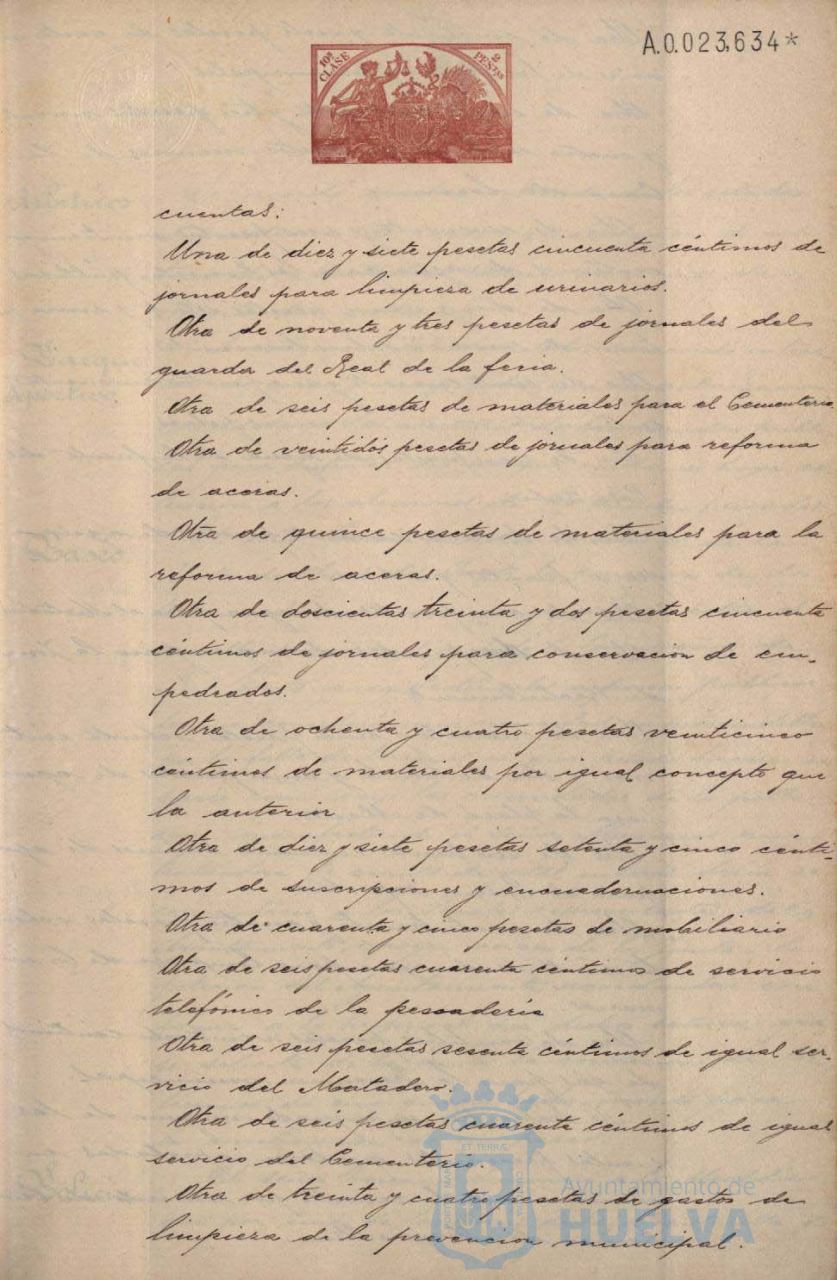 A.0.023,634*
10ª CLASE
2 PESETAS
cuentas:
Una de diez y siete pesetas cincuenta céntimos de
jornales para limpieza de urinarios.
Otra de noventa y tres pesetas de jornales del
guarda del Real de la feria.
Otra de seis pesetas de materiales para el Cementerio
Otra de veintidos pesetas de jornales para reforma
de aceras.
Otra de quince pesetas de materiales para la
reforma de aceras.
Otra de doscientas treinta y dos pesetas cincuenta
céntimos de jornales para conservacion de em-
pedrados.
Otra de ochenta y cuatro pesetas veinticinco
céntimos de materiales por igual concepto que
la anterior
Otra de diez y siete pesetas setenta y cinco cénti-
mos de suscripciones y encuadernaciones.
Otra de cuarenta y cinco pesetas de mobiliario
Otra de seis pesetas cuarenta céntimos de servicio
telefónico de la pescadería
Otra de seis pesetas sesenta céntimos de igual ser-
vicio del Matadero.
Otra de seis pesetas cuarenta céntimos de igual
servicio del Cementerio.
Otra de treinta y cuatro pesetas de gastos de
limpieza de la prevencion municipal.
ET TERRÆ
Ayuntamiento de
HUELVA